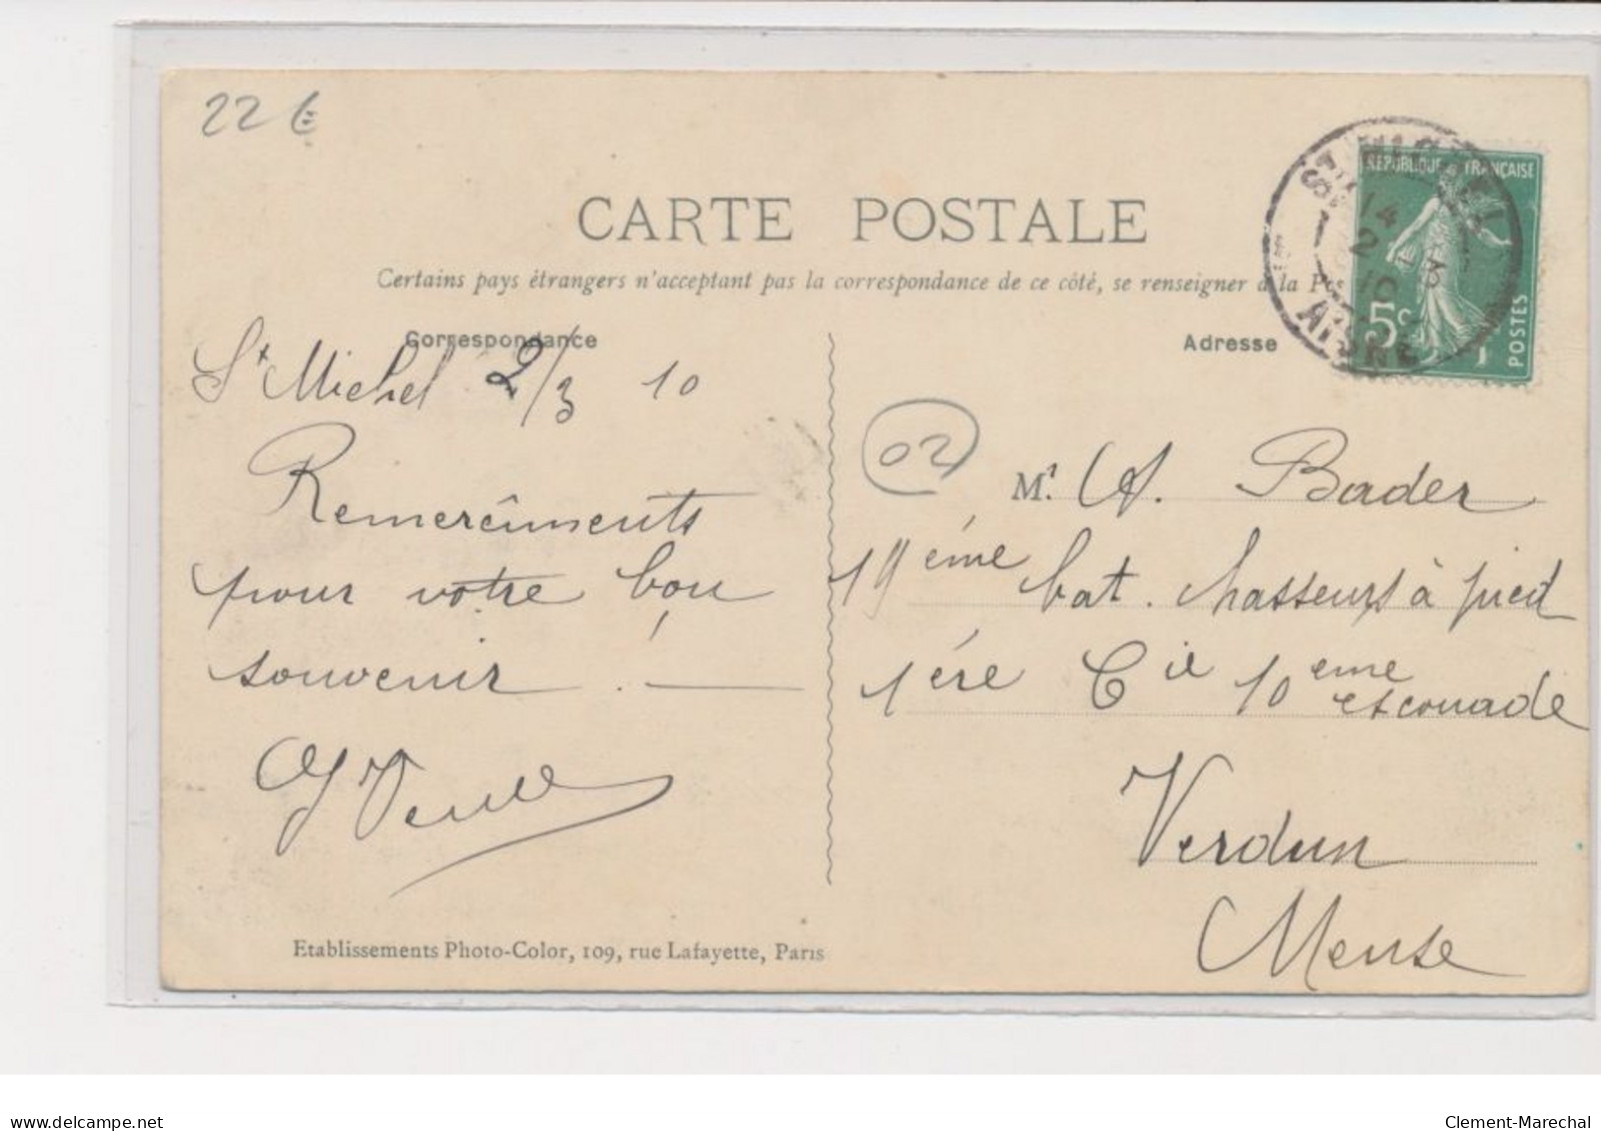 22 €
CARTE POSTALE
Certains pays étrangers n'acceptant pas la correspondance de ce côté, se renseigner à la P
Correspondance
Adresse
RÉPUBLIQUE FRANÇAISE
5c
POSTES
ST MICHEL
14
2 3
10
AISNE
St Michel 2/3 10
Remercîments
pour votre bon
souvenir ! —
02
Mr. A. Bader
19ème bat. chasseurs à pied
1ère Cie 10eme escouade
Verdun
Meuse
Etablissements Photo-Color, 109, rue Lafayette, Paris
www.delcampe.net
Clement-Marechal